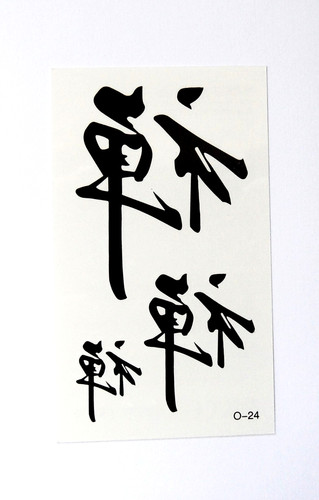 禅
禅
禅
O-24